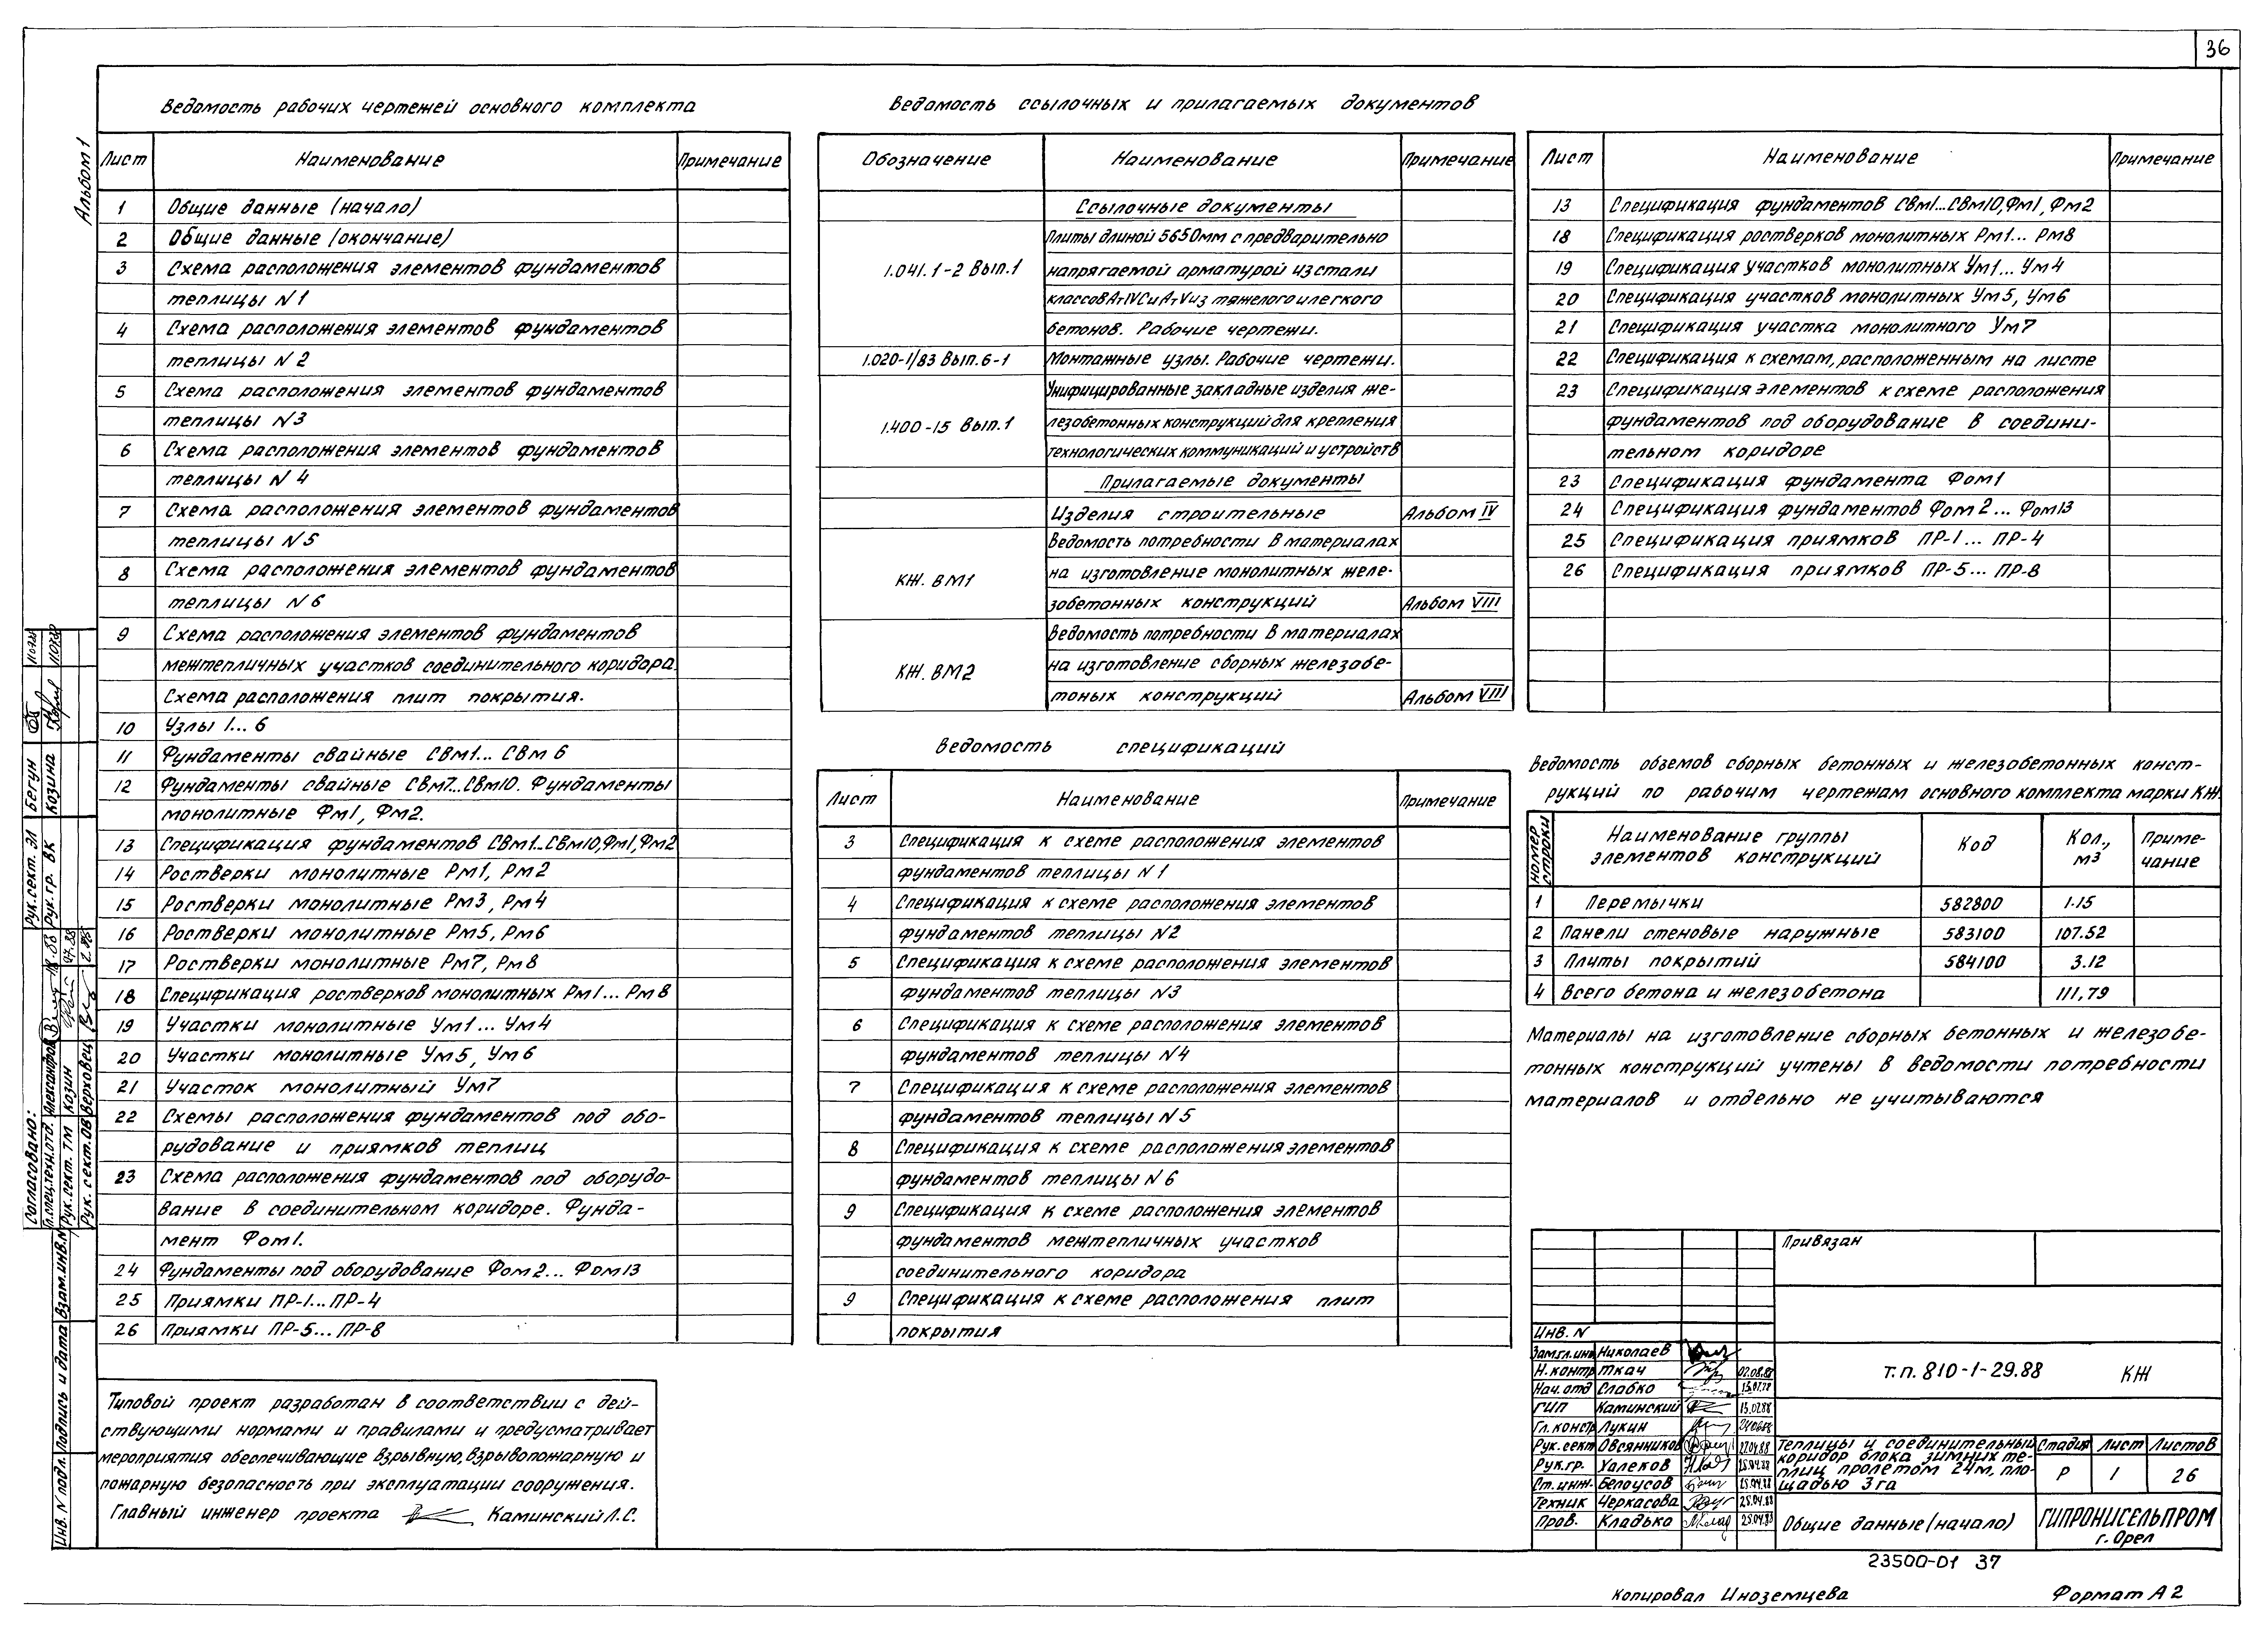 36
Альбом 1
Ведомость рабочих чертежей основного комплекта
Лист Наименование Примечание
1 Общие данные (начало)
2 Общие данные (окончание)
3 Схема расположения элементов фундаментов
теплицы N1
4 Схема расположения элементов фундаментов
теплицы N2
5 Схема расположения элементов фундаментов
теплицы N3
6 Схема расположения элементов фундаментов
теплицы N4
7 Схема расположения элементов фундаментов
теплицы N5
8 Схема расположения элементов фундаментов
теплицы N6
9 Схема расположения элементов фундаментов
межтепличных участков соединительного коридора.
Схема расположения плит покрытия.
10 Узлы 1...6
11 Фундаменты свайные СВм1... СВм 6
12 Фундаменты свайные СВм7...СВм10. Фундаменты
монолитные Фм1, Фм2.
13 Спецификация фундаментов СВм1...СВм10,Фм1,Фм2
14 Ростверки монолитные Рм1, Рм2
15 Ростверки монолитные Рм3, Рм4
16 Ростверки монолитные Рм5, Рм6
17 Ростверки монолитные Рм7, Рм8
18 Спецификация ростверков монолитных Рм1... Рм8
19 Участки монолитные Ум1... Ум4
20 Участки монолитные Ум5, Ум6
21 Участок монолитный Ум7
22 Схемы расположения фундаментов под обо-
рудование и приямков теплиц
23 Схема расположения фундаментов под оборудо-
вание в соединительном коридоре. Фунда-
мент Фом1.
24 Фундаменты под оборудование Фом2... Фом13
25 Приямки ПР-1... ПР-4
26 Приямки ПР-5... ПР-8
Типовой проект разработан в соответствии с дей-
ствующими нормами и правилами и предусматривает
мероприятия обеспечивающие взрывную, взрывопожарную и
пожарную безопасность при эксплуатации сооружения.
Главный инженер проекта Каминский Л.С.
Ведомость ссылочных и прилагаемых документов
Обозначение Наименование Примечание
Ссылочные документы
1.041.1-2 Вып.1 Плиты длиной 5650мм с предварительно
напрягаемой арматурой из стали
классов АтIVС и АтV из тяжелого и легкого
бетонов. Рабочие чертежи.
1.020-1/83 Вып.6-1 Монтажные узлы. Рабочие чертежи.
1.400-15 Вып.1 Унифицированные закладные изделия же-
лезобетонных конструкций для крепления
технологических коммуникаций и устройств
Прилагаемые документы
Изделия строительные Альбом IV
КЖ. ВМ1 Ведомость потребности в материалах
на изготовление монолитных желе-
зобетонных конструкций Альбом VIII
КЖ. ВМ2 Ведомость потребности в материалах
на изготовление сборных железобе-
тоных конструкций Альбом VIII
Ведомость спецификаций
Лист Наименование Примечание
3 Спецификация к схеме расположения элементов
фундаментов теплицы N1
4 Спецификация к схеме расположения элементов
фундаментов теплицы N2
5 Спецификация к схеме расположения элементов
фундаментов теплицы N3
6 Спецификация к схеме расположения элементов
фундаментов теплицы N4
7 Спецификация к схеме расположения элементов
фундаментов теплицы N5
8 Спецификация к схеме расположения элементов
фундаментов теплицы N6
9 Спецификация к схеме расположения элементов
фундаментов межтепличных участков
соединительного коридора
9 Спецификация к схеме расположения плит
покрытия
Лист Наименование Примечание
13 Спецификация фундаментов СВм1...СВм10,Фм1,Фм2
18 Спецификация ростверков монолитных Рм1... Рм8
19 Спецификация участков монолитных Ум1... Ум4
20 Спецификация участков монолитных Ум5, Ум6
21 Спецификация участка монолитного Ум7
22 Спецификация к схемам, расположенным на листе
23 Спецификация элементов к схеме расположения
фундаментов под оборудование в соедини-
тельном коридоре
23 Спецификация фундамента Фом1
24 Спецификация фундаментов Фом2... Фом13
25 Спецификация приямков ПР-1... ПР-4
26 Спецификация приямков ПР-5... ПР-8
Ведомость объемов сборных бетонных и железобетонных конст-
рукций по рабочим чертежам основного комплекта марки КЖ.
номер строки Наименование группы элементов конструкций Код Кол., м3 Приме-чание
1 Перемычки 582800 1.15
2 Панели стеновые наружные 583100 107.52
3 Плиты покрытий 584100 3.12
4 Всего бетона и железобетона 111,79
Материалы на изготовление сборных бетонных и железобе-
тонных конструкций учтены в ведомости потребности
материалов и отдельно не учитываются
Привязан
Инв. N
Зам.гл.инж Николаев
Н.контр Ткач 02.08.88
Нач.отд Слабко
ГИП Каминский 13.0288
Гл.констр Лукин
Рук.сект Овсянников 27.04.88
Рук.гр. Халеков 25.04.88
Ст.инж. Белоусов 25.04.88
Техник Черкасова 25.04.88
Пров. Кладько 25.04.88
т.п. 810-1-29.88 КЖ
Теплицы и соединительный
коридор блока зимних те-
плиц пролетом 24м, пло-
щадью 3га
Стадия Лист Листов
Р 1 26
Общие данные (начало)
ГИПРОНИСЕЛЬПРОМ
г. Орел
23500-01 37
Копировал Иноземцева Формат А2
Согласовано:
Гл.спец.техн.отд. Александров
Рук.сект. ТМ Козин
Рук. сект.ОВ Верховец
Рук.сект. ЭЛ Бегун
Рук.гр. ВК Козина
Инв. N подл. Подпись и дата Взам.инв.N